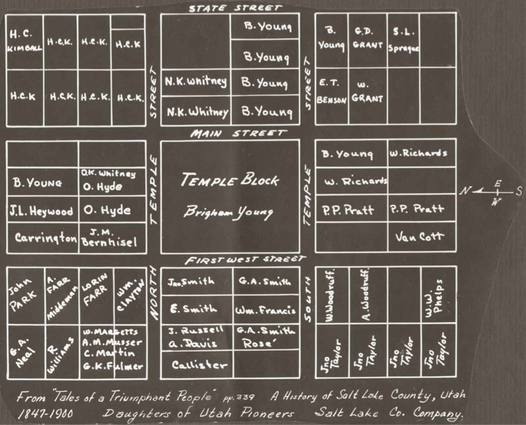 STATE STREET
H.C. KIMBALL
H.C.K.
H.C.K.
H.C.K
H.C.K
H.C.K.
H.C.K.
H.C.K.
B. Young
B. Young
N.K. Whitney
B. Young
N.K. Whitney
B. Young
B. Young
G.D. GRANT
S.L. Sprague
E.T. BENSON
W. GRANT
STREET
STREET
MAIN STREET
B. YOUNG
O.K. Whitney
O. Hyde
J.L. Heywood
O. Hyde
Carrington
J.M. Bernhisel
TEMPLE
TEMPLE BLOCK
Brigham Young
TEMPLE
B. Young
W. Richards
W. Richards
P.P. Pratt
P.P. Pratt
Van Cott
N
E
S
W
FIRST WEST STREET
John PARK
A. FARR
Middleman
LORIN FARR
Wm. CLAYTON
G.A. Neal
R. Williams
W. MARGETTS
A.M. Musser
C. Martin
G.K. Falmer
NORTH
Jno. Smith
G.A. Smith
E. Smith
Wm. Francis
J. Russell
A. Davis
G.A. Smith
Rose'
Callister
SOUTH
W. Woodruff.
A. Woodruff.
W.W. Phelps
Jno Taylor
Jno Taylor
Jno Taylor
Jno Taylor
From "Tales of a Triumphant People" pp. 339 A History of Salt Lake County, Utah
1847-1900 Daughters of Utah Pioneers Salt Lake Co. Company.